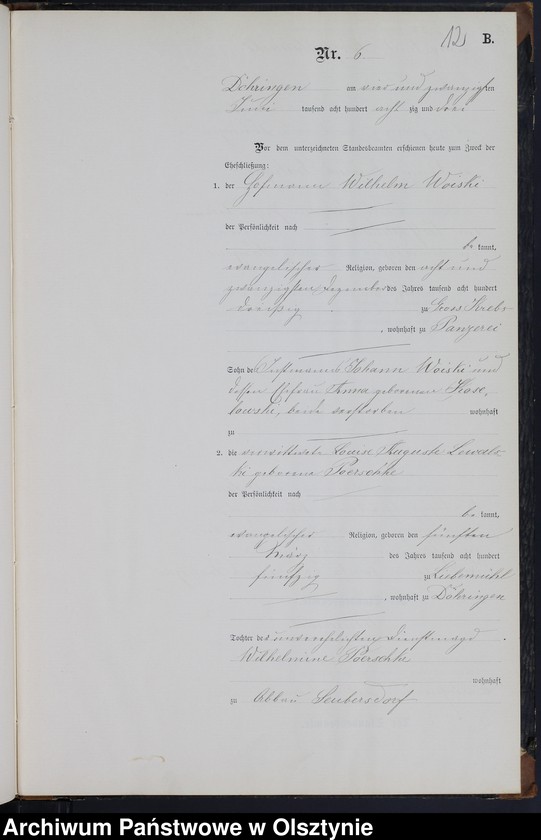 12 B.
Nr. 6
Döhringen am vier und zwanzigsten
Juni tausend acht hundert acht zig und drei
Vor dem unterzeichneten Standesbeamten erschienen heute zum Zweck der
Eheschließung:
1. der Hofmann Wilhelm Woiski
der Persönlichkeit nach
be kannt,
evangelischer Religion, geboren den acht und
zwanzigsten Dezember des Jahres tausend acht hundert
dreißig zu Gross Krebs
, wohnhaft zu Panzerei
Sohn des Instmanns Johann Woiski und
dessen Ehefrau Anna geborenen Kose
lowski, beide verstorben wohnhaft
zu
2. die verwittwete Auguste
geborene Poerschke
der Persönlichkeit nach
be kannt,
evangelischer Religion, geboren den fünften
März des Jahres tausend acht hundert
fünfzig zu Liebemühl
, wohnhaft zu Döhringen
Tochter der unverehelichten Dienstmagd
Wilhelmine Poerschke
wohnhaft
zu Abbau Seubersdorf
Archiwum Państwowe w Olsztynie